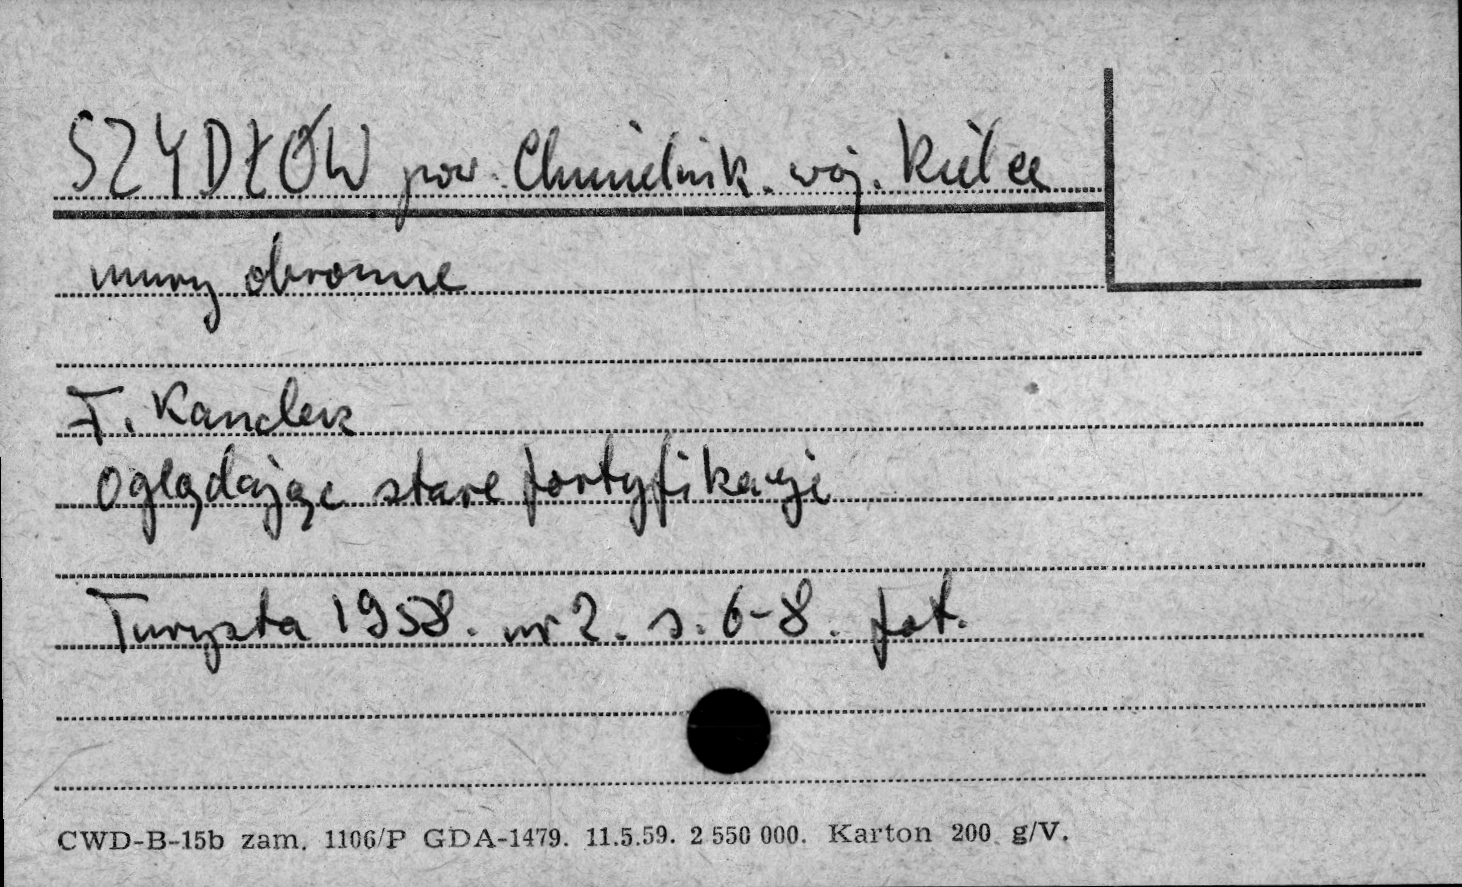 SZYDŁÓW pow. Chmielnik. woj. Kielce
mury obronne
F. Kandek
oglądając stare fortyfikacje
Turysta 1958. nr 2. s. 6-8. fot.
CWD-B-15b zam. 1106/P GDA-1479. 11.5.59. 2 550 000. Karton 200 g/V.